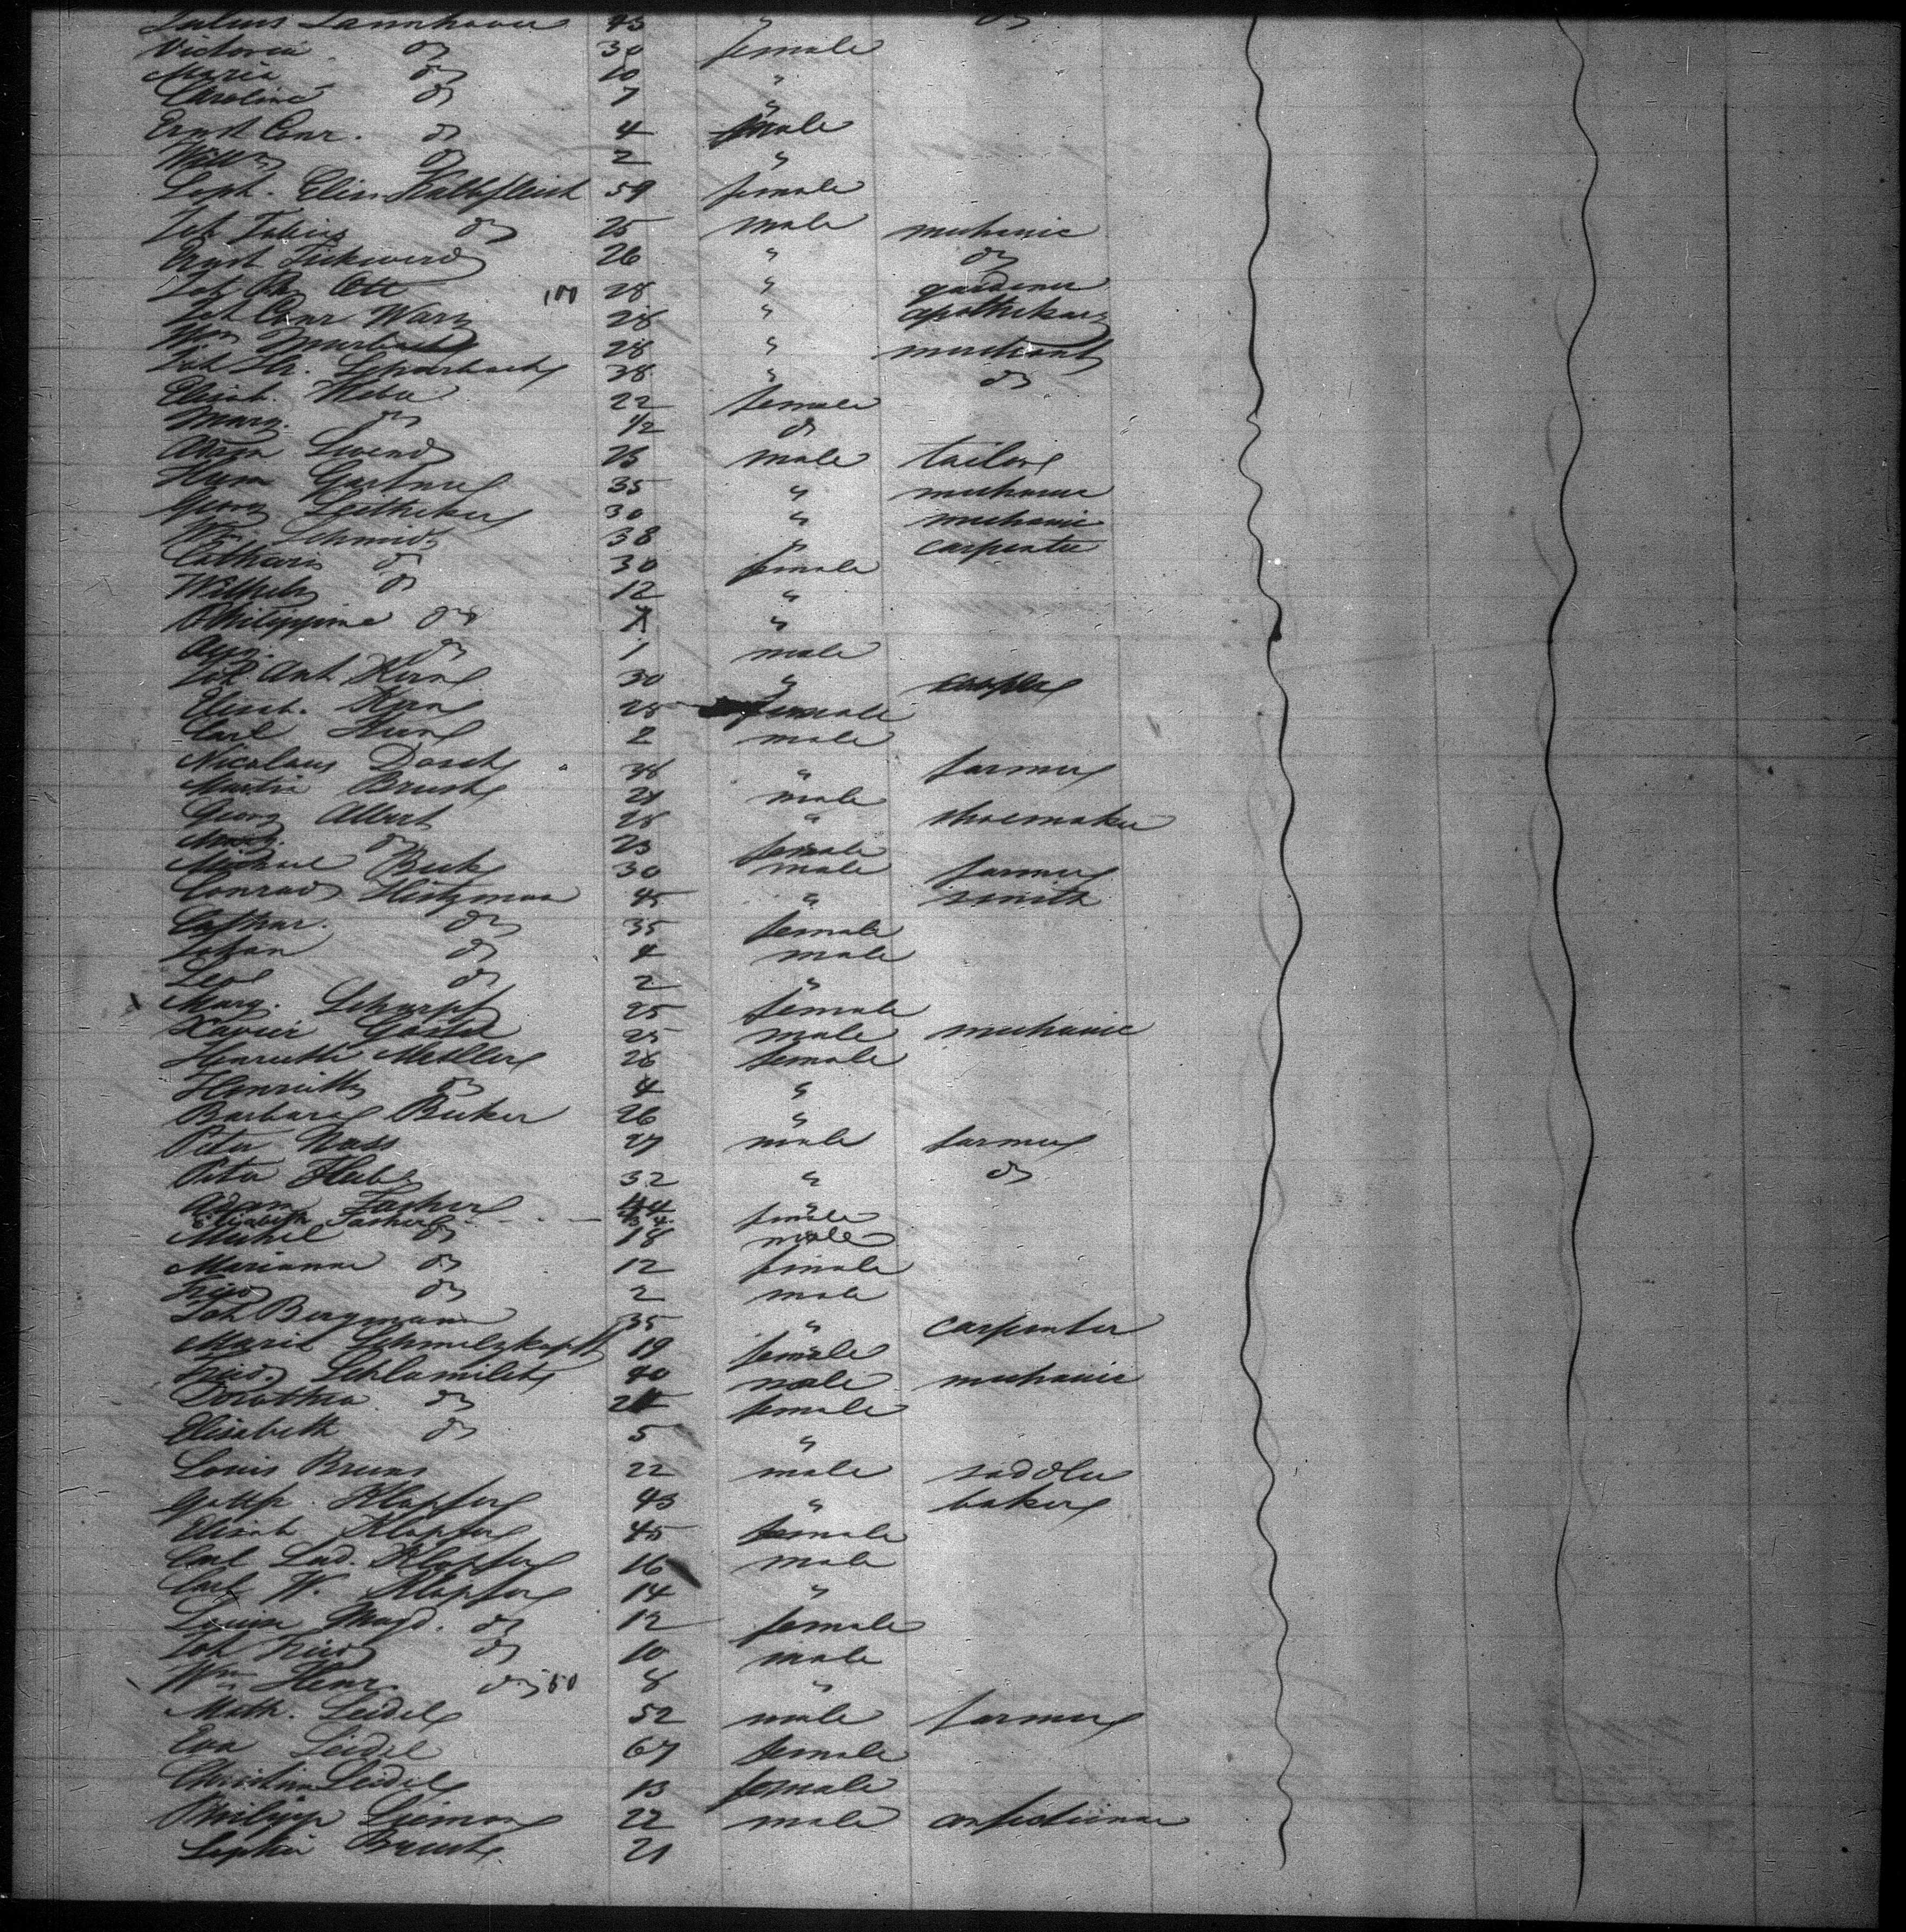 Julius Tannhauer 43 " do
Victoria do 30 female
Maria do 10 "
Caroline do 7 "
Ernst Conr. do 4 male
Willm do 2 "
Soph. Elis. Kalbfleisch 59 female
Joh Tobias do 25 male mechanic
Ernst 26 " do
Joh Ott 100 28 " gardener
Joh Conr Warz 28 " apothekary
Wm Murbach 28 " merchant
Joh 38 " do
Elisab. Weber 22 female
Marg. do 1/2 do
Adam 23 male tailor
Herm Gartner 35 " mechanic
Georg 30 " mechanic
Wm Schmidt 38 " carpenter
Catharin do 30 female
Wilhelm do 12 "
Philippina do 7 "
Aug. do 1 male
Joh Ant Kern 30 " cooper
Elisab. Kern 28 female
Carl Kern 2 male
Nicolaus Dosch 38 " farmer
Martin Brusch 21 male
Georg Albert 28 " shoemaker
do 23 female
Michael Beck 30 male farmer
Conrad Hitzman 45 " smith
Cathar. do 35 female
Johan do 4 male
Leo do 2 "
Marg. Scharpf 25 female
Xavier 25 male mechanic
Henriette Metller 28 female
Henriette do 4 "
Barbara Becker 26 "
Peter Nass 27 male farmer
Peter 32 " do
Adam Fasher 44
Elisabeth Fasher female
Michel do 18 male
Marianne do 12 female
Fried do 2 male
Joh Bergmann 35 " carpenter
Maria Schmelzkopf 19 female
Fried. Schlamilch 40 male mechanic
Dorothea do female
Elisabeth do 5 "
Louis Bruns 22 male saddler
Gottfr. Klopfer 43 " baker
Elisab Klopfer 45 female
Carl Lud. Klopfer 16 male
Carl W. Klopfer 14 "
Louisa Magd. do 12 female
Joh Fried do 10 male
Wm Henr. do 50 8 "
Math. Seidel 52 male farmer
Eva Seidel 67 female
Christina Seidel 13 female
Philipp Siemon 22 male confectioner
Sophia Brusch 21